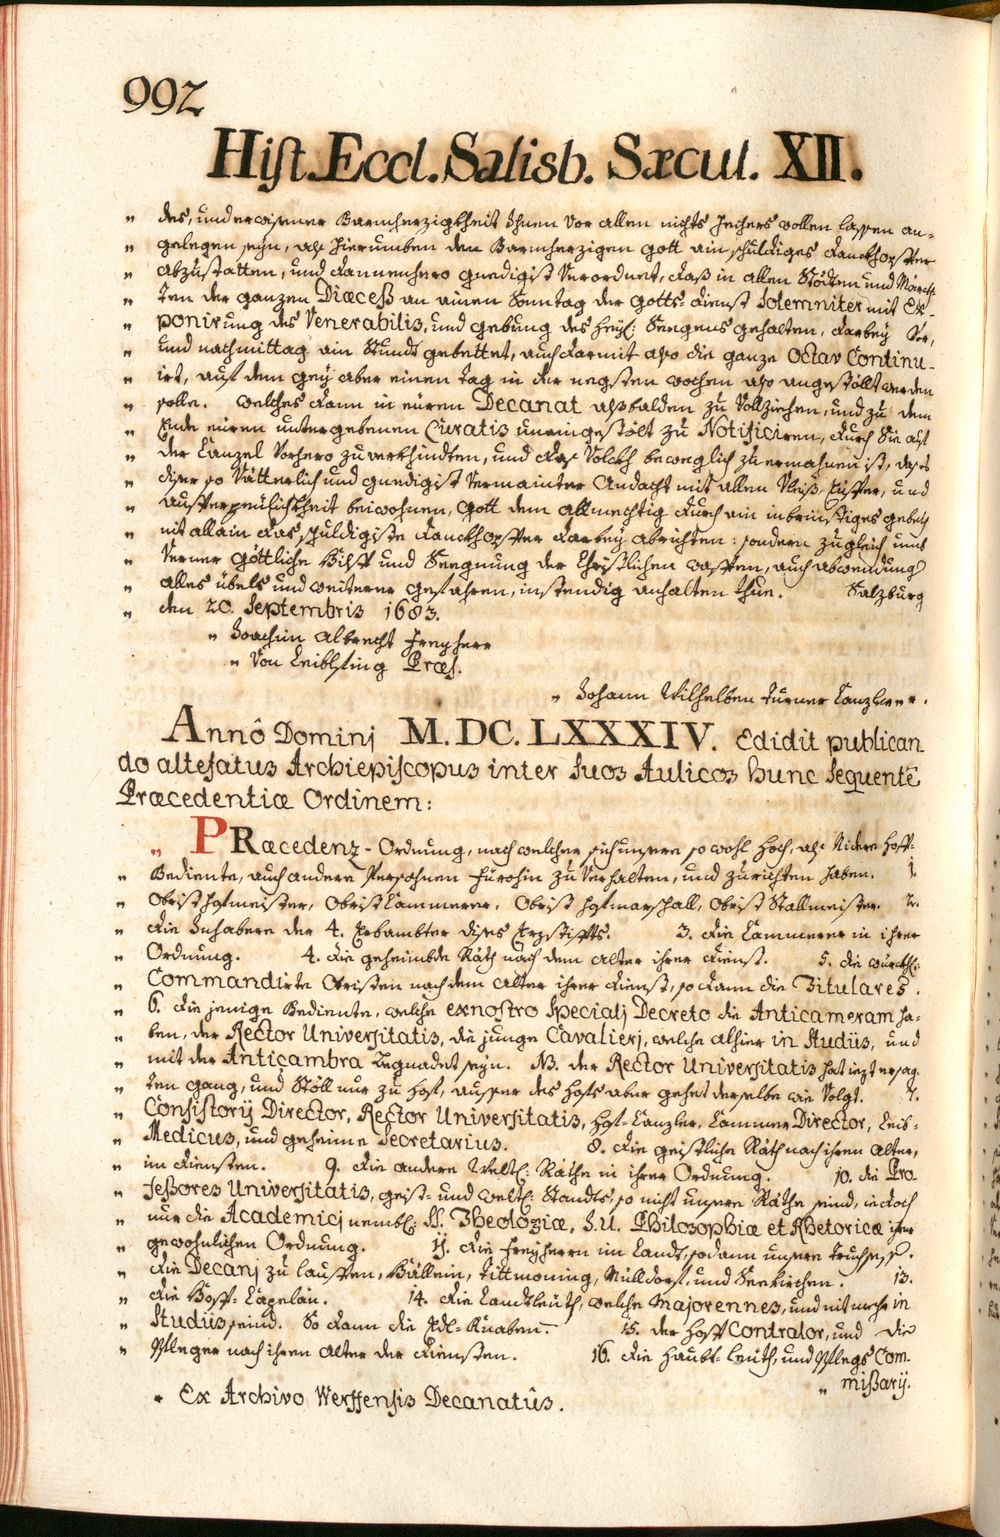 992
Hist. Eccl. Salisb. Sæcul. XII.
„ des, und erwisener Barmherzigkheit Ihnen vor allen nichts Jechers wollen lassen an-
„ gelegen seyn, als hierumben dem Barmherzigen Gott ain schuldiges danckhopffer
„ abzustatten, und dannenhero gnedigist verordnet, daß in allen Stötten und Märckh
„ ten der ganzen Diæceß an ainem Sonntag der Gotts-dienst Solemniter mit Ex-
„ ponirung des Venerabilis, und gebung des heyl: Seegens gehalten, darbey Vor,
„ und nachmittag ain Stundt gebettet, auch darmit also die ganze Octav Continu-
„ irt, auf dem gey aber einen tag in der negsten wochen also angestöllt werden
„ solle. Welches dann in euren Decanat alsbalden zu Vollziehen, und zu dem
„ Ende euren untergebenen Curatis uneingestölt zu Notificiren, durch Sie auf
„ der Canzel Vorhero zu verkhindten, und das Volckh beweglich zu ermahnen ist, dass
„ diser so Vätterlich und gnedigist vermainter Andacht mit allen Vleiß, Eiffer, und
„ Aufferpeulichkheit beiwohnen, Gott dem Allmechtig durch ain inbrünstiges gebeth
„ nit allain das schuldigiste danckhopffer darbey abrichten: sondern zugleich umb
„ Verner Göttliche Hilff und Seegnung der Christlichen waffen, auch abwendung
„ alles übels und weiterer gefahren, instendig anhalten thue. Salzburg
„ den 20. Septembris 1683.
„ Joachim Albrecht Freyherr
„ Von Leiblfing Præs.
„ Johann Wilhelben turner Canzleer.
Annô Dominj M. DC. LXXXIV. Edidit publican
do altefatus Archiepiscopus inter suos Aulicos hunc sequentē
Præcedentiæ Ordinem:
„ PRæcedenz-Ordnung, nach welcher sich unsere so wohl Hoch, als Nidere Hoff-
„ Bediente, auch andere Persohnen fürohin zu Verhalten, und zurichten haben. 1.
„ Obrist Hofmeister, Obrist Cammerer, Obrist Hofmarschall, Obrist Stallmeister. 2.
„ die Inhabere der 4. Erbambter dises Erzstiffts. 3. die Cammerer in ihrer
„ Ordnung. 4. die geheimbde Räth nach dem Alter ihrer dienst. 5. die würckl:
„ Commandirte Obristen nach dem Alter ihrer dienst, so dann die Titulares.
„ 6. die jenige Bediente, welche ex nostro Specialj Decreto die Anticameram ha-
„ ben, der Rector Universitatis, die junge Cavalierj, welche alhier in Studiis, und
„ mit der Anticambra Begnadet seyn. NB. der Rector Universitatis hat iezt ersag-
„ ten gang, und Stöll nur zu Hof, ausser des Hofs aber gehet derselbe wie Volgt. 7.
„ Consistorij Director, Rector Universitatis, Hof-Canzler, Cammer Director, Leib-
„ Medicus, und geheime Secretarius. 8. die geistliche Räth nach ihren Alter,
„ im diensten. 9. die andere Weltl: Räthe in ihrer Ordnung. 10. die Pro-
„ feßores Universitatis, geist- und weltl: Standts, so nicht unsere Räthe seind, iedoch
„ nur die Academicj nembl: SS. Theologiæ, J.U. Philosophiæ et Rhetoricæ ihrer
„ gewohnlichen Ordnung. 11. die Freyherrn im Landt, sodann unsere truchsess.
„ die Decanj zu Lauffen, Hällein, Tittmoning, Mülldorf, und Seekirchen. 13.
„ die Hoff-Capelän. 14. die Landtleuth, welche majorennes, und nit mehr in
„ Studiis seind. So dann die Edl-Knaben. 15. der Hoff Contralor, und die
„ Pfleger nach ihren Alter der diensten. 16. die Haubt-Leuth, und Pflegs Com-
„ mißarij.
„ Ex Archivo Werffensis Decanatûs.